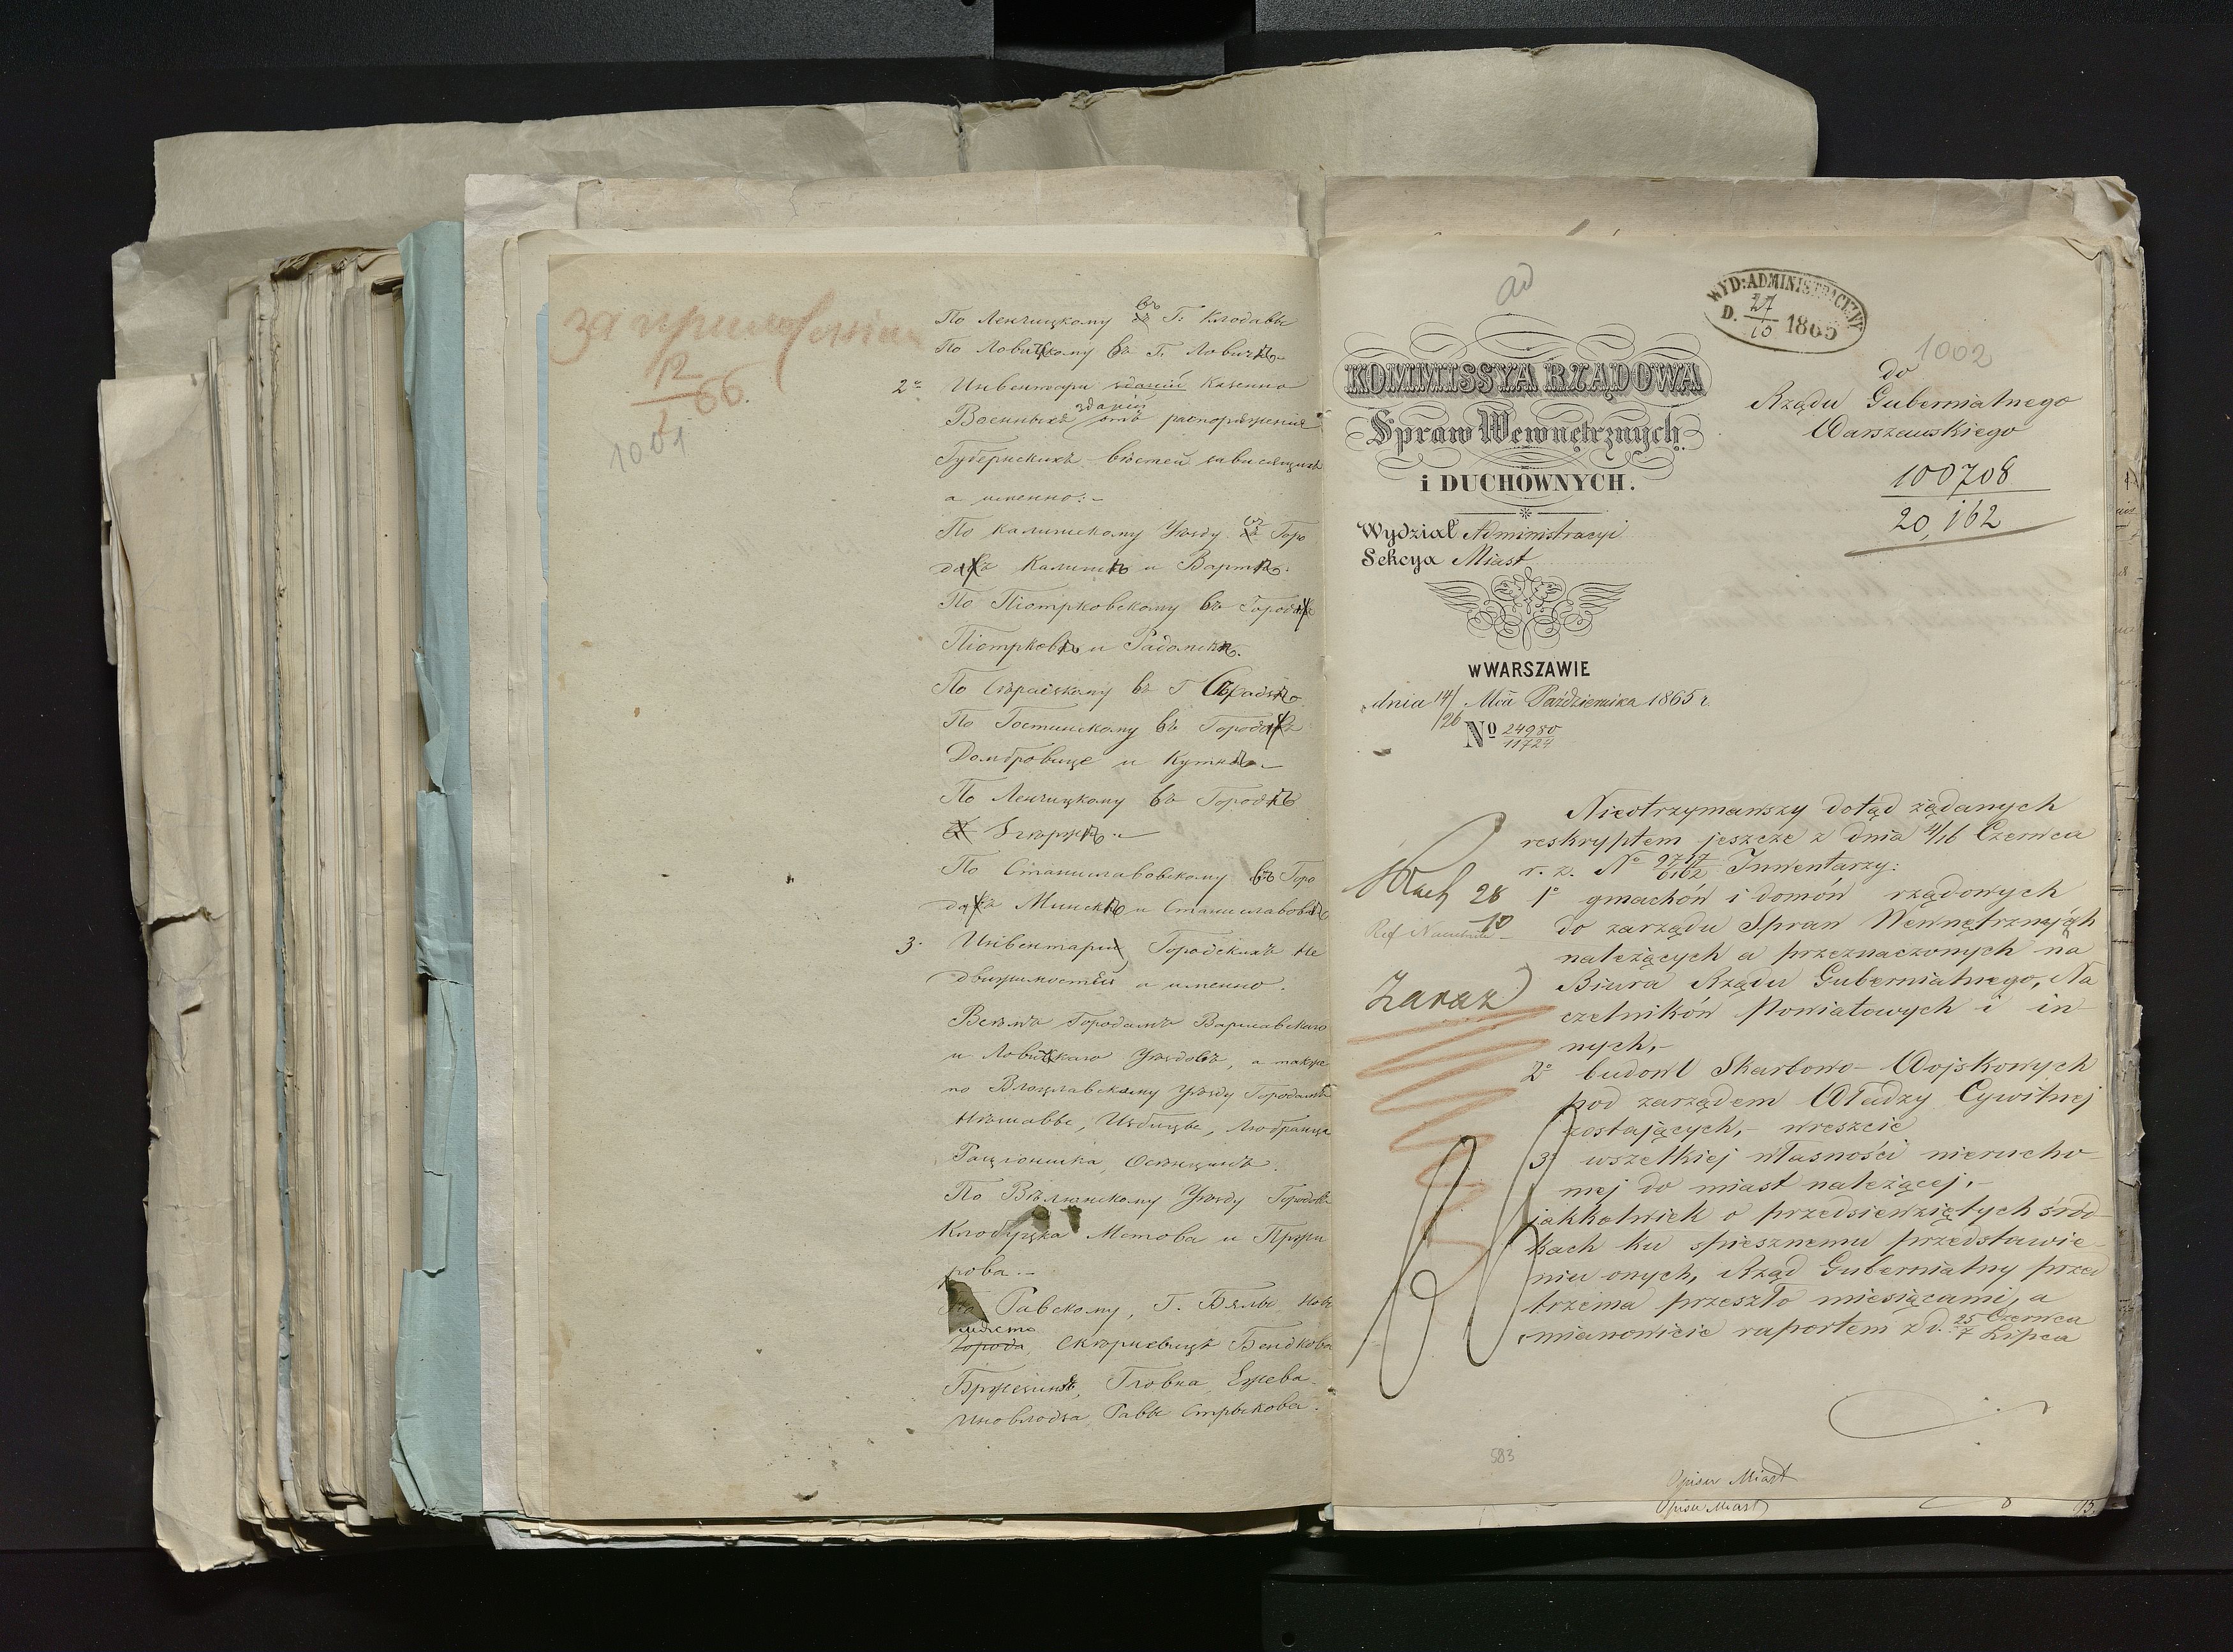 1001
По Ленчицкому въ Г: Клодавы
По Ловичскому въ Г. Ловичѣ
2о Инвентари зданій Казенно
Военныхъ зданій отъ распоряженія
Губернскихъ властей зависящихъ
а именно:-
По Калишскому Уѣзду въ Горо
дахъ Калишѣ и Вартѣ.
По Піотрковскому въ Городахъ
Піотрковѣ и Радомскѣ.
По Сѣрадзкому въ Г Сѣрадзѣ
По Гостинскому въ Городахъ
Домбровице и Кутнѣ
По Ленчицкому въ Городѣ
Згѣржѣ
По Станиславовскому въ Горо
дахъ Минскѣ и Станиславовѣ
3. Инвентари Городскихъ не
движимостей а именно.
Всѣмъ Городамъ Варшавскаго
и Ловичскаго Уѣздовъ, а также
по Влоцлавскому Уѣзду Городамъ
Нѣшавы, Избицы, Любранца
Рационжка, Осѣнцинъ.
По Вѣлюнскому Уѣзду Городовъ
Клобуцка Мстова и Пржи
рова.-
По Равскому, Г. Бялы, Нове
място
Города, Скерневицъ Бендкова
Бржезинъ, Гловна, Ежева
Иновлодза, Равы Стрыкова.
ad
WYD: ADMINISTRACYJNY
D. 27/10 1865
1002
KOMMISSYA RZĄDOWA
Spraw Wewnętrznych
i DUCHOWNYCH.
Wydział Administracyi
Sekcya Miast
w WARSZAWIE
dnia 14/26 Mca Października 1865 r.
No 24980/11724
do
Rządu Gubernialnego
Warszawskiego
100708
20,162
Nieotrzymawszy dotąd żądanych
reskryptem jeszcze z dnia 4/16 Czerwca
r. z. No 9737/6162 Inwentarzy:
1o gmachów i domów rządowych
do zarządu Spraw Wewnętrznych
należących a przeznaczonych na
Biura Rządu Gubernialnego, Na
czelników Powiatowych i in
nych,-
2o budowl Skarbowo-Wojskowych
pod zarządem Władzy Cywilnej
zostających,- wreszcie
3o wszelkiej własności nierucho
mej do miast należącej,-
jakkolwiek o przedsięwziętych środ
kach ku spiesznemu przedstawie
niu onych, Rząd Gubernialny przed
trzema przeszło miesiącami, a
mianowicie raportem z d. 25 Czerwca/7 Lipca
28
10
Zaraz
583
Opisu Miast
Opisu Miast